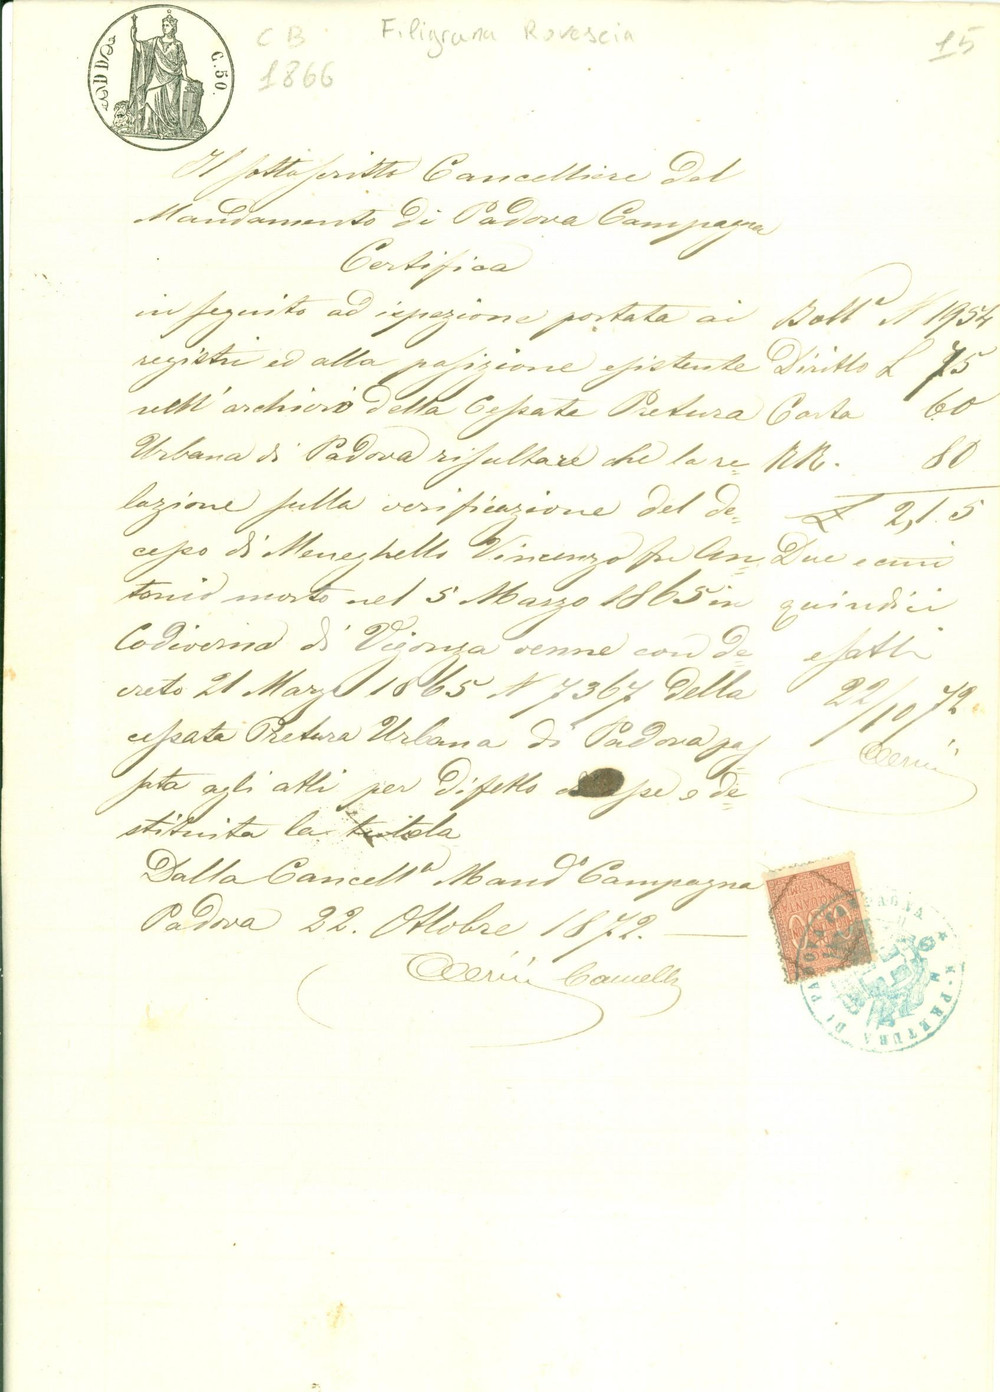 C. 50.
CB Filigrana Rovescia 15
1866
Il sottoscritto Cancelliere del
Mandamento di Padova Campagna
Certifica
in seguito ad ispezione portata ai
registri ed alla posizione esistente
nell'archivio della cessata Pretura
Urbana di Padova risultare che la re=
lazione sulla verificazione del de=
cesso di Meneghello Vincenzo fu An=
tonio morto nel 5 Marzo 1865 in
Codiverna di Vigonza venne con de=
creto 21 Marzo 1865 N 7367 della
cessata Pretura Urbana di Padova pas=
sata agli atti per difetto asse e de=
stituita la tutela
Dalla Cancellª Mandº Campagna
Padova 22. Ottobre 1872.
Cancell
Bollª N 1954
Diritto £ 75
Carta 60
RR. 80
£ 2,1.5
Due e cmi
quindici
esatti
22/10 72
CINQUANTA
R. PRETURA DI PADOVA CAMPAGNA